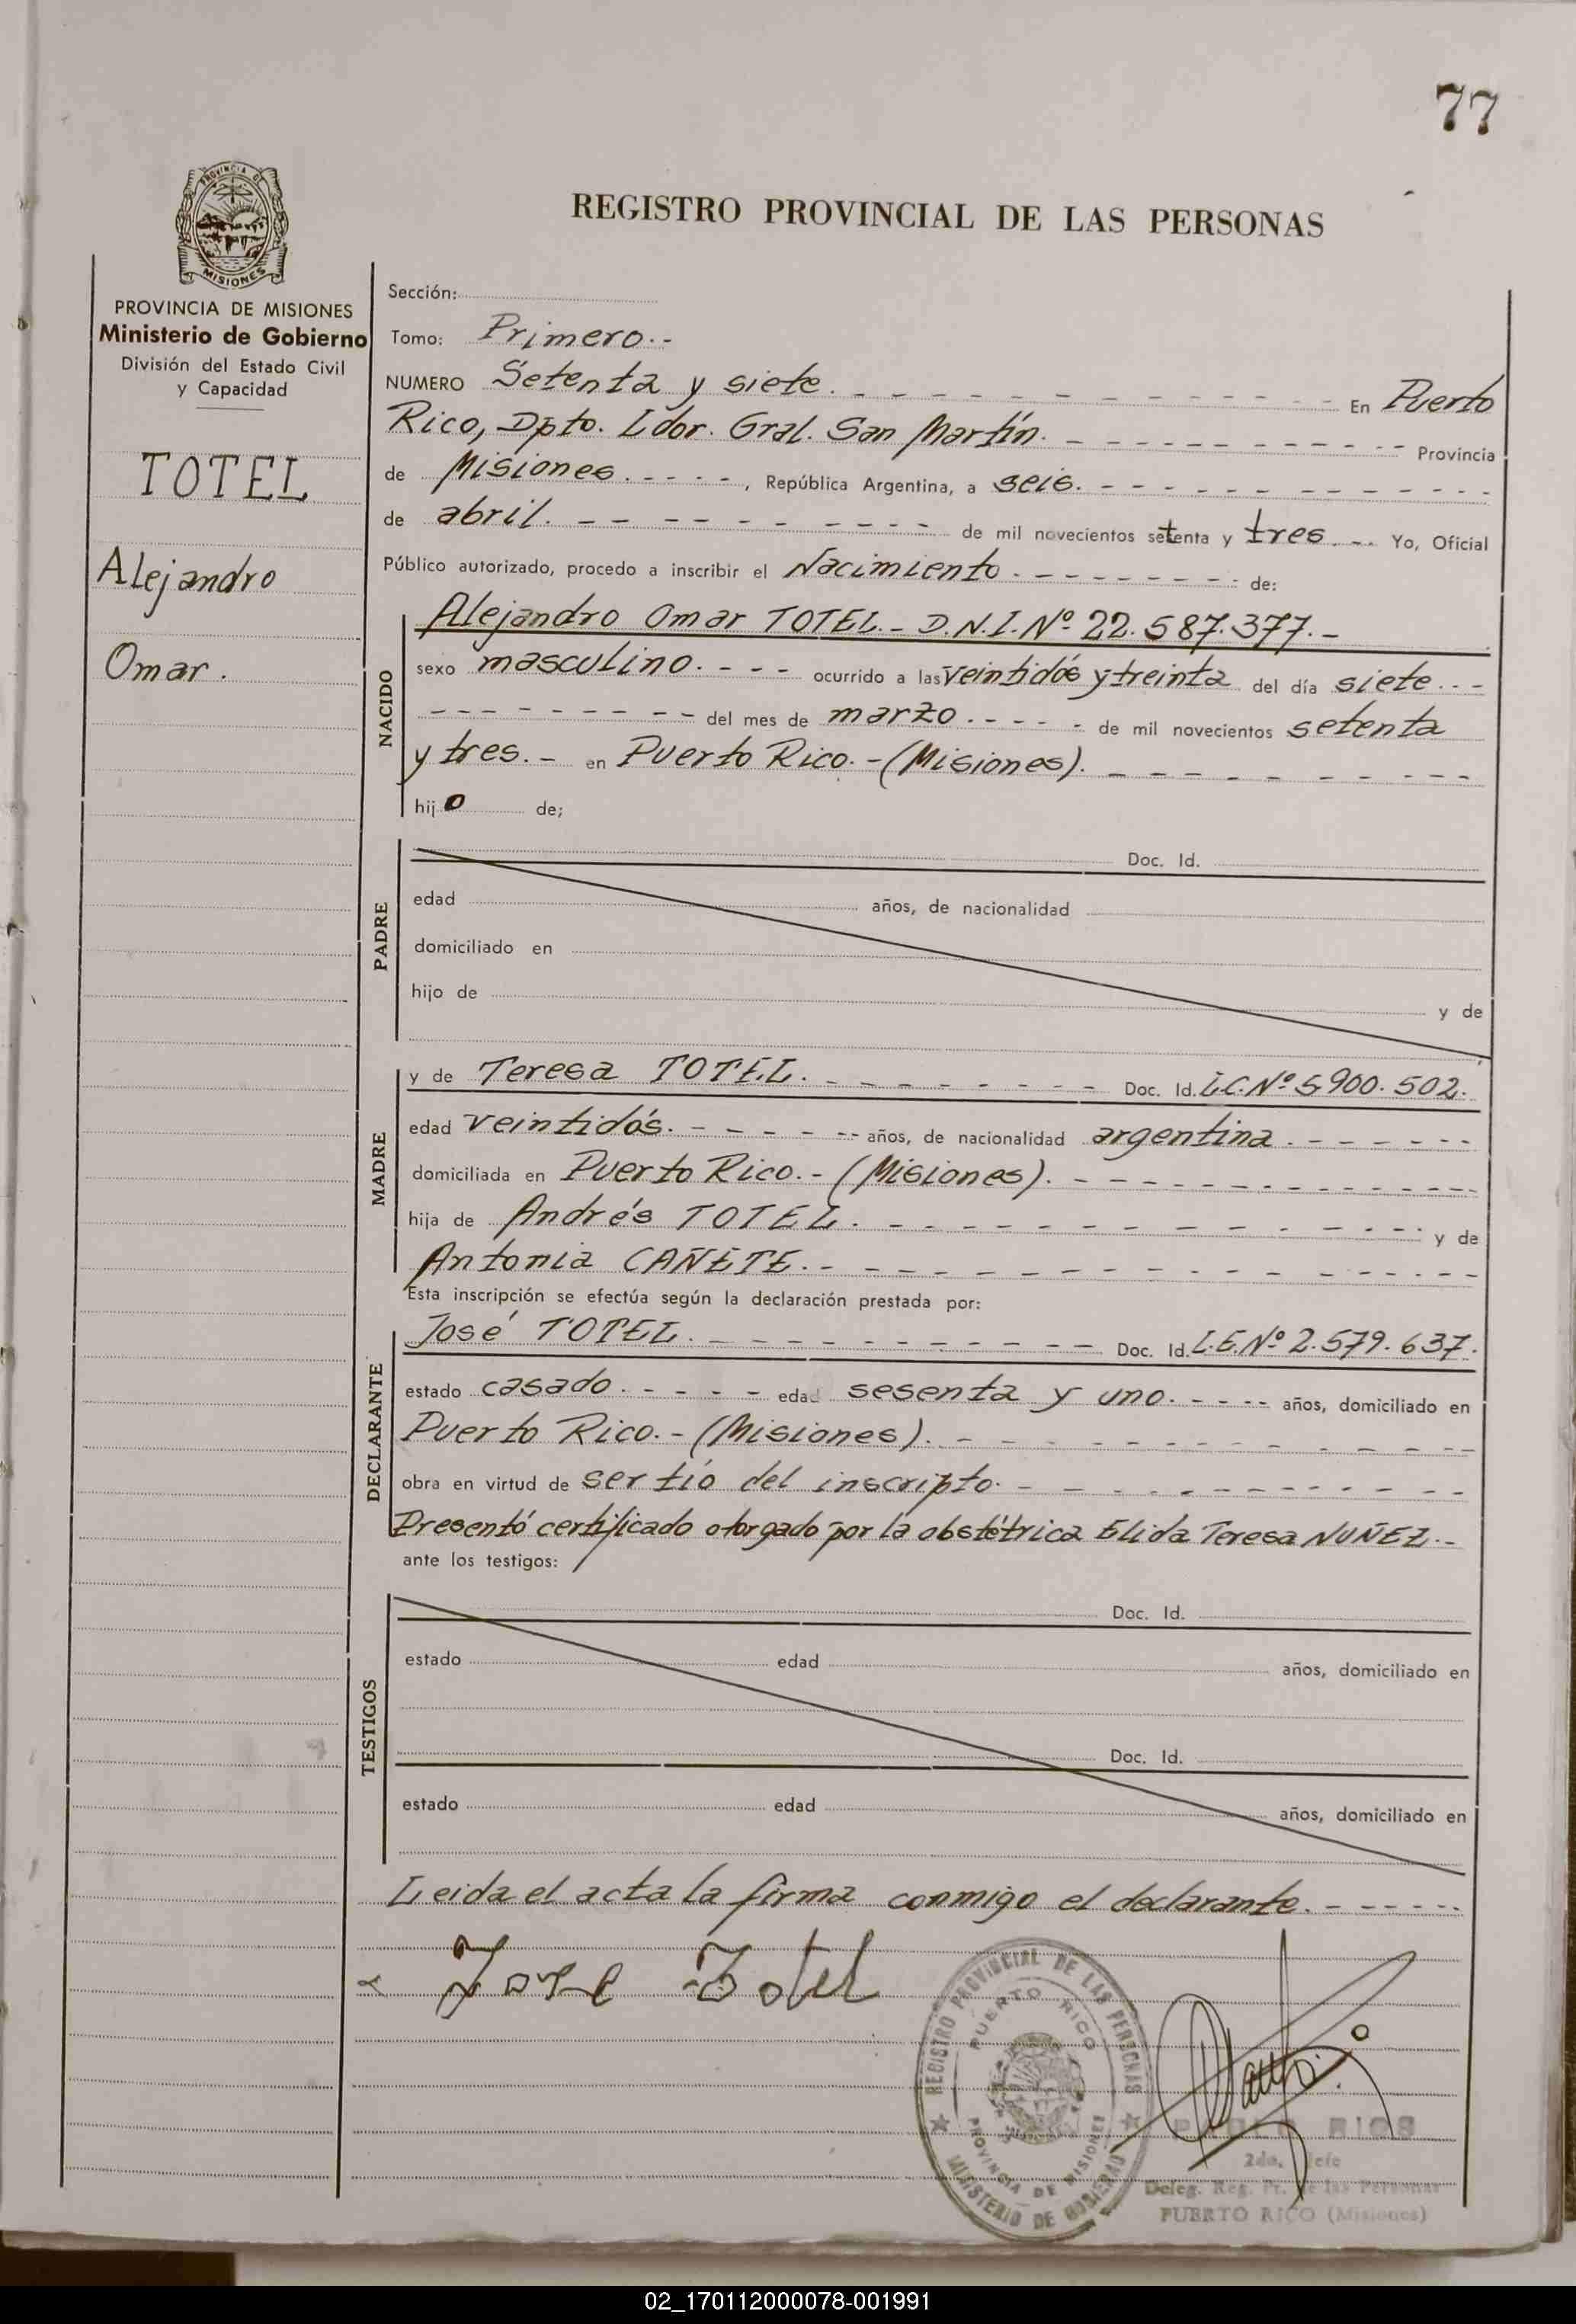 77
PROVINCIA DE
MISIONES
REGISTRO PROVINCIAL DE LAS PERSONAS
PROVINCIA DE MISIONES
Ministerio de Gobierno
División del Estado Civil
y Capacidad
TOTEL
Alejandro
Omar.
Sección:
Tomo: Primero.-
NUMERO Setenta y siete. En Puerto
Rico, Dpto. Ldor. Gral. San Martín. Provincia
de Misiones. , República Argentina, a seis.
de abril. de mil novecientos setenta y tres. Yo, Oficial
Público autorizado, procedo a inscribir el Nacimiento. de:
NACIDO
Alejandro Omar TOTEL.- D.N.I. Nº 22.587.377.-
sexo masculino. ocurrido a las veintidós y treinta del día siete.
del mes de marzo. de mil novecientos setenta
y tres.- en Puerto Rico.-(Misiones).
hijo de;
PADRE
Doc. Id.
edad años, de nacionalidad
domiciliado en
hijo de y de
MADRE
y de Teresa TOTEL. Doc. Id. L.C. Nº 5900.502.
edad veintidós. años, de nacionalidad argentina.
domiciliada en Puerto Rico.-(Misiones).
hija de Andrés TOTEL. y de
Antonia CAÑETE.
Esta inscripción se efectúa según la declaración prestada por:
DECLARANTE
José TOTEL. Doc. Id. L.E. Nº 2.579.637.
estado casado. edad sesenta y uno. años, domiciliado en
Puerto Rico.-(Misiones).
obra en virtud de ser tío del inscripto.
Presentó certificado otorgado por la obstétrica Elida Teresa NUÑEZ.-
ante los testigos:
TESTIGOS
Doc. Id.
estado edad años, domiciliado en
Doc. Id.
estado edad años, domiciliado en
Leida el acta la firma conmigo el declarante.
Jose Totel
REGISTRO PROVINCIAL DE LAS PERSONAS
PUERTO RICO
PROVINCIA DE MISIONES
MINISTERIO DE GOBIERNO
RIOS
2do. Jefe
Deleg. Reg. Pr. de las Personas
PUERTO RICO (Misiones)
02_170112000078-001991